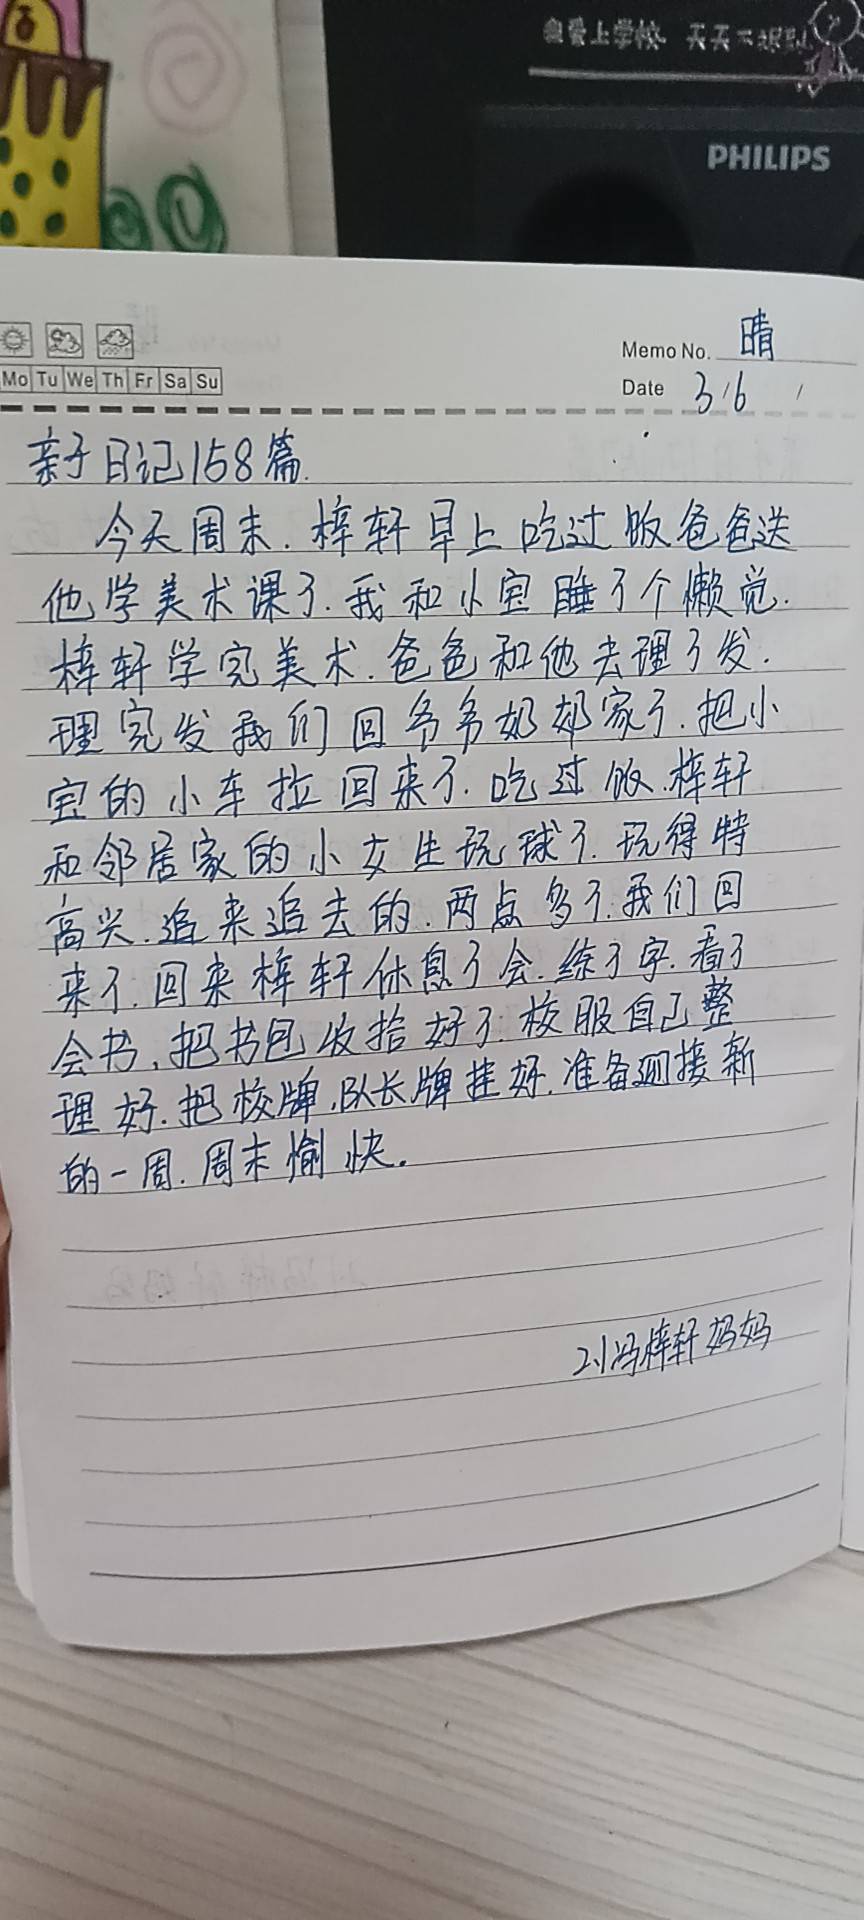 我爱上学校 天天不迟到
PHILIPS
Memo No. 晴
Mo Tu We Th Fr Sa Su
Date 3/6 /
亲子日记158篇.
今天周末.梓轩早上吃过饭爸爸送
他学美术课了.我和小宝睡了个懒觉.
梓轩学完美术.爸爸和他去理了发.
理完发我们回爷爷奶奶家了.把小
宝的小车拉回来了.吃过饭.梓轩
和邻居家的小女生玩球了.玩得特
高兴.追来追去的.两点多了.我们回
来了.回来梓轩休息了会.练了字.看了
会书、把书包收拾好了.校服自己整
理好.把校牌.队长牌挂好.准备迎接新
的一周.周末愉快.
刘冯梓轩妈妈